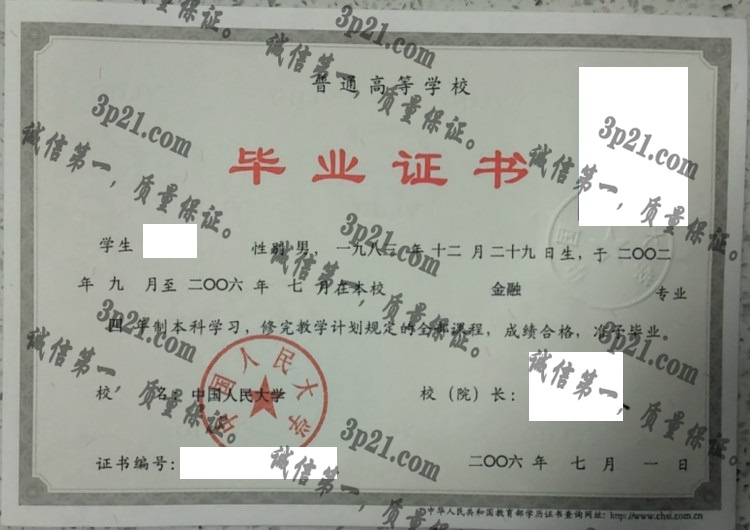 普通高等学校
毕业证书
学生 性别 男，一九八三年十二月二十九日生，于二〇〇二
年九月至二〇〇六年七月在本校 金融 专业
四年制本科学习，修完教学计划规定的全部课程，成绩合格，准予毕业。
校 名：中国人民大学 校（院）长：
中国人民大学
证书编号： 二〇〇六年七月一日
中华人民共和国教育部学历证书查询网址：http://www.chsi.com.cn
3p21.com
诚信第一，质量保证。
3p21.com
诚信第一，质量保证。
3p21.com
诚信第一，质量保证。
3p21.com
诚信第一，质量保证。
3p21.com
诚信第一，质量保证。
3p21.com
诚信第一，质量保证。
3p21.com
诚信第一，质量保证。